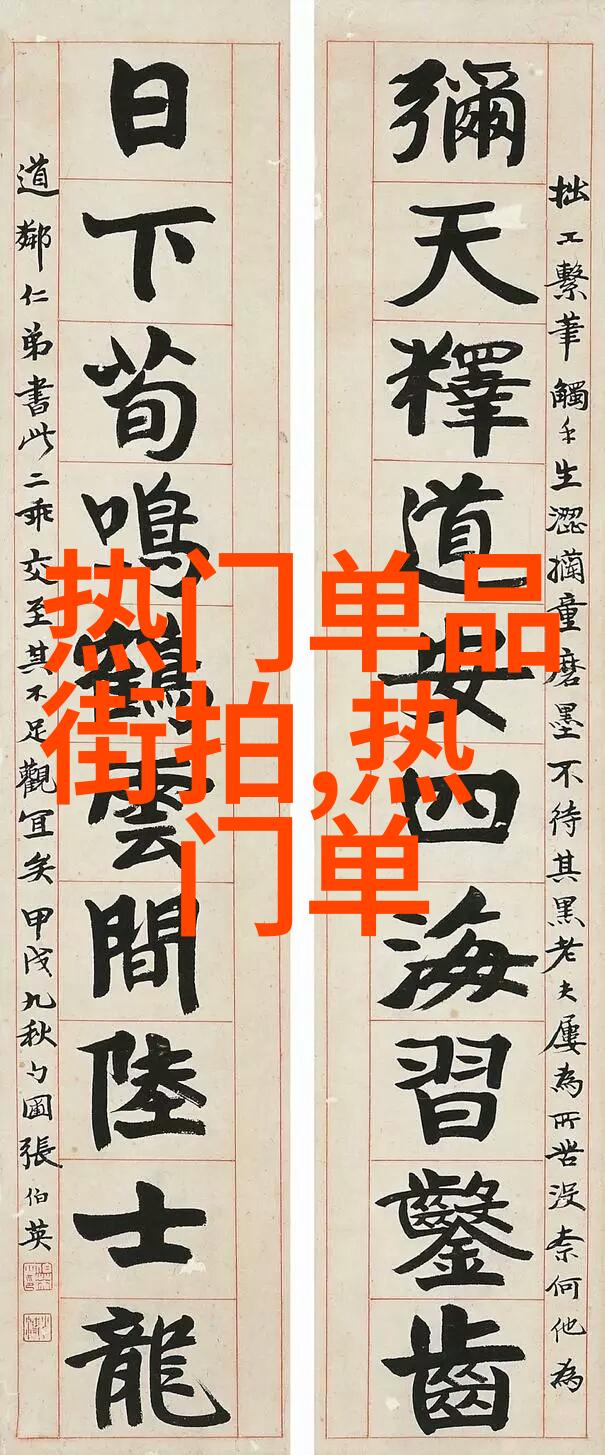 拙工繫筆觸手生澀摛童磨墨不待其黑老夫屢為所苦沒柰何他為
彌天釋道安四海習鑿齒
日下荀鳴鶴雲間陸士龍
道鄰仁弟書此二乖交至其不足觀宜矣甲戌九秋勺圃張伯英
热门单品
街拍,热
门单